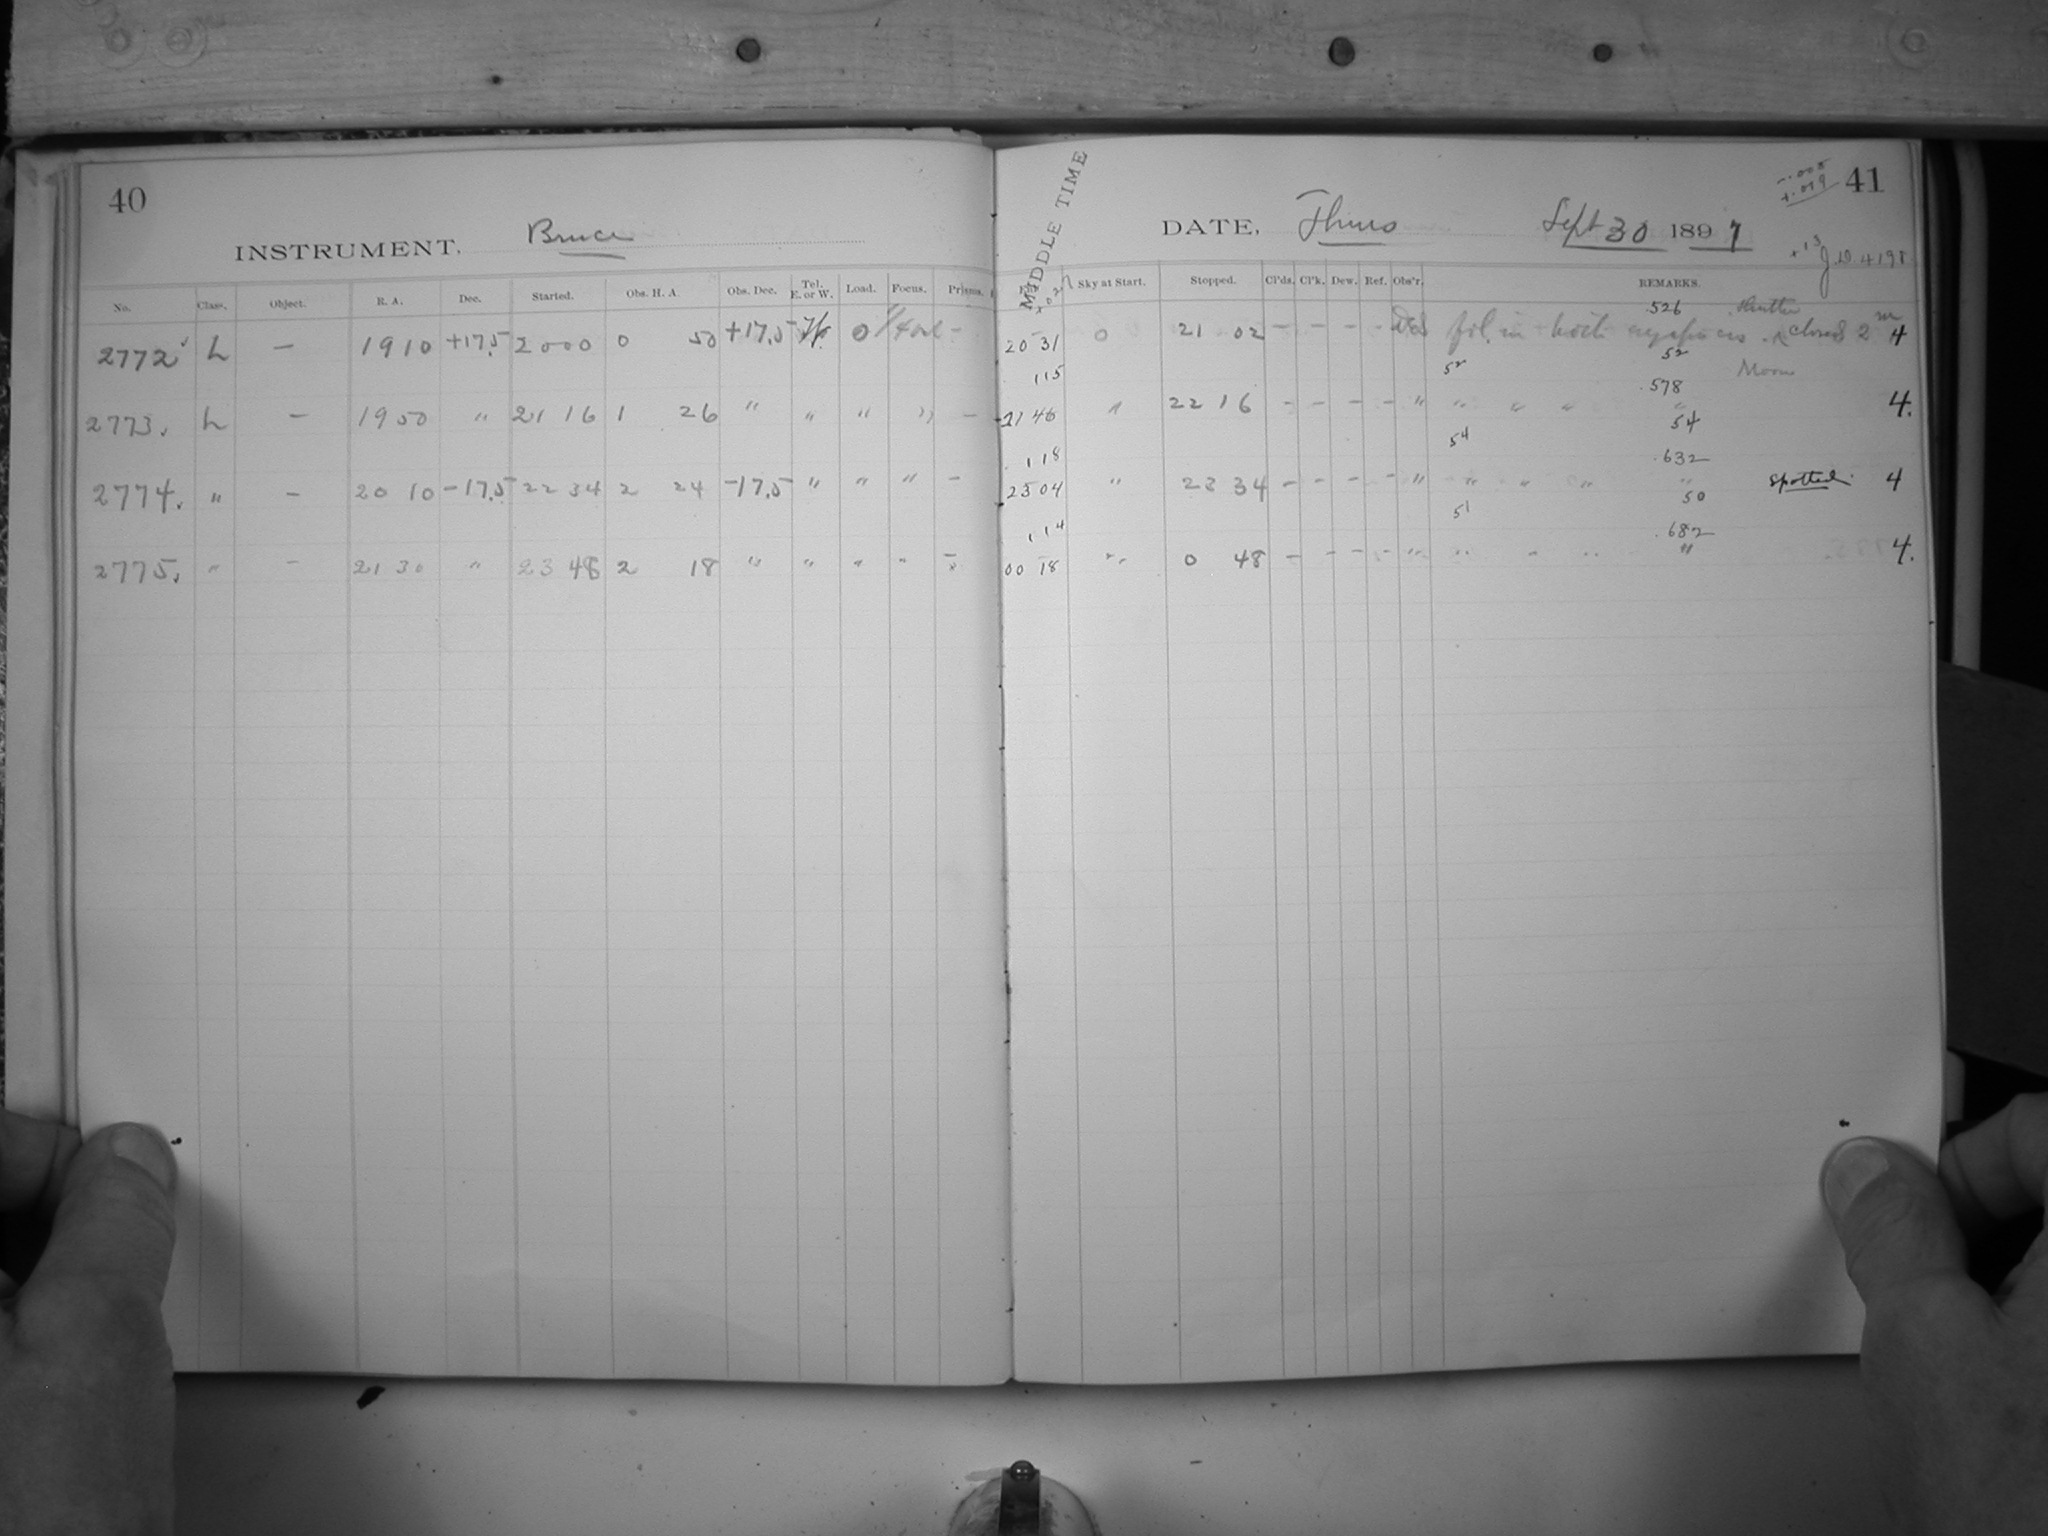 40
INSTRUMENT, Bruce
No. Class. Object. R. A. Dec. Started. Obs. H. A. Obs. Dec. Tel. E. or W. Load. Focus. Prisms.
2772 L — 19 10 +17.5 20 00 0 50 +17.5 0 —
2773. L — 19 50 " 21 16 1 26 " " " " —
2774. " — 20 10 -17.5 22 34 2 24 -17.5 " " " —
2775. " — 21 30 " 23 48 2 18 " " " " —
MIDDLE TIME
41
-.005
+.019
DATE, Thurs Sept 30 1897
+13 J.D. 4198
Sky at Start. Stopped. Cl'ds. Cl'k. Dew. Ref. Obs'r. REMARKS.
.526
20 31 0 21 02 - - - - fol. in both closed 2m 4
52 52
115 Moon
.578
21 46 " 22 16 - - - - " " " " " 4.
54 54
118 .632
23 04 " 23 34 - - - - " " " " " spotted. 4
51 50
114 .682
00 18 " 0 48 - - - - " " " " " 4.